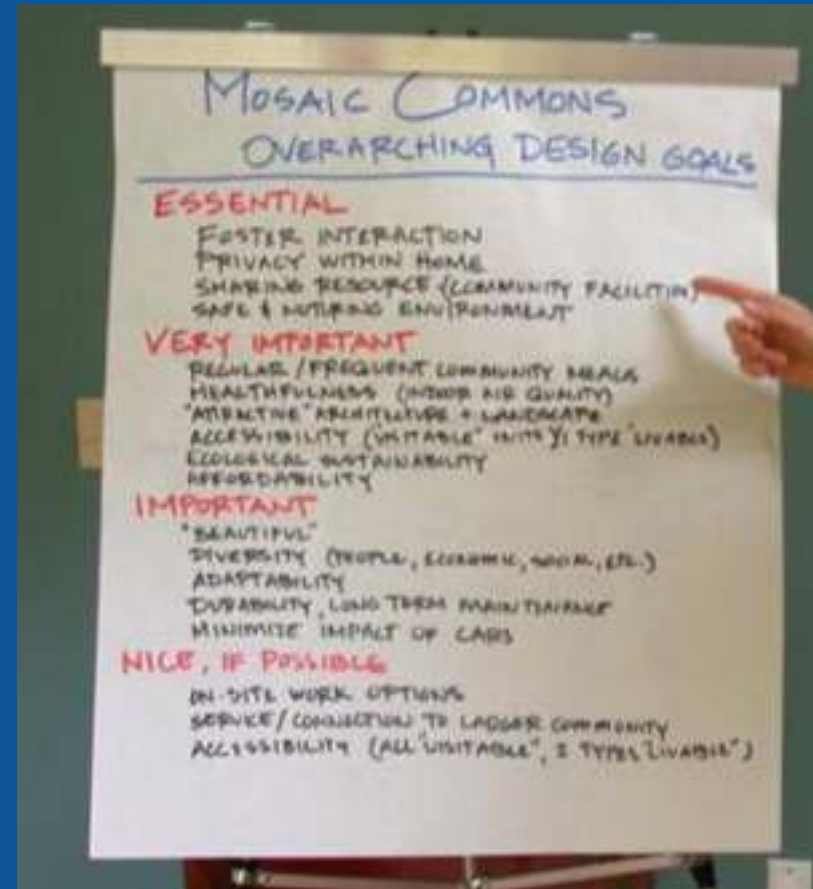 MOSAIC COMMONS
OVERARCHING DESIGN GOALS
ESSENTIAL
FOSTER INTERACTION
PRIVACY WITHIN HOME
SHARING RESOURCE (COMMUNITY FACILITIES)
SAFE & NUTURING ENVIRONMENT
VERY IMPORTANT
REGULAR / FREQUENT COMMUNITY MEALS
HEALTHFULNESS (INDOOR AIR QUALITY)
"ATTRACTIVE" ARCHITECTURE + LANDSCAPE
ACCESSIBILITY ("VISITABLE" UNITS TYPE "LIVABLE")
ECOLOGICAL SUSTAINABILITY
AFFORDABILITY
IMPORTANT
"BEAUTIFUL"
DIVERSITY (PEOPLE, ECONOMIC, SOCIAL, ETC.)
ADAPTABILITY
DURABILITY, LONG TERM MAINTINANCE
MINIMIZE IMPACT OF CARS
NICE, IF POSSIBLE
ON-SITE WORK OPTIONS
SERVICE / CONNECTION TO LARGER COMMUNITY
ACCESSIBILITY (ALL "VISITABLE", 2 TYPES "LIVABLE")